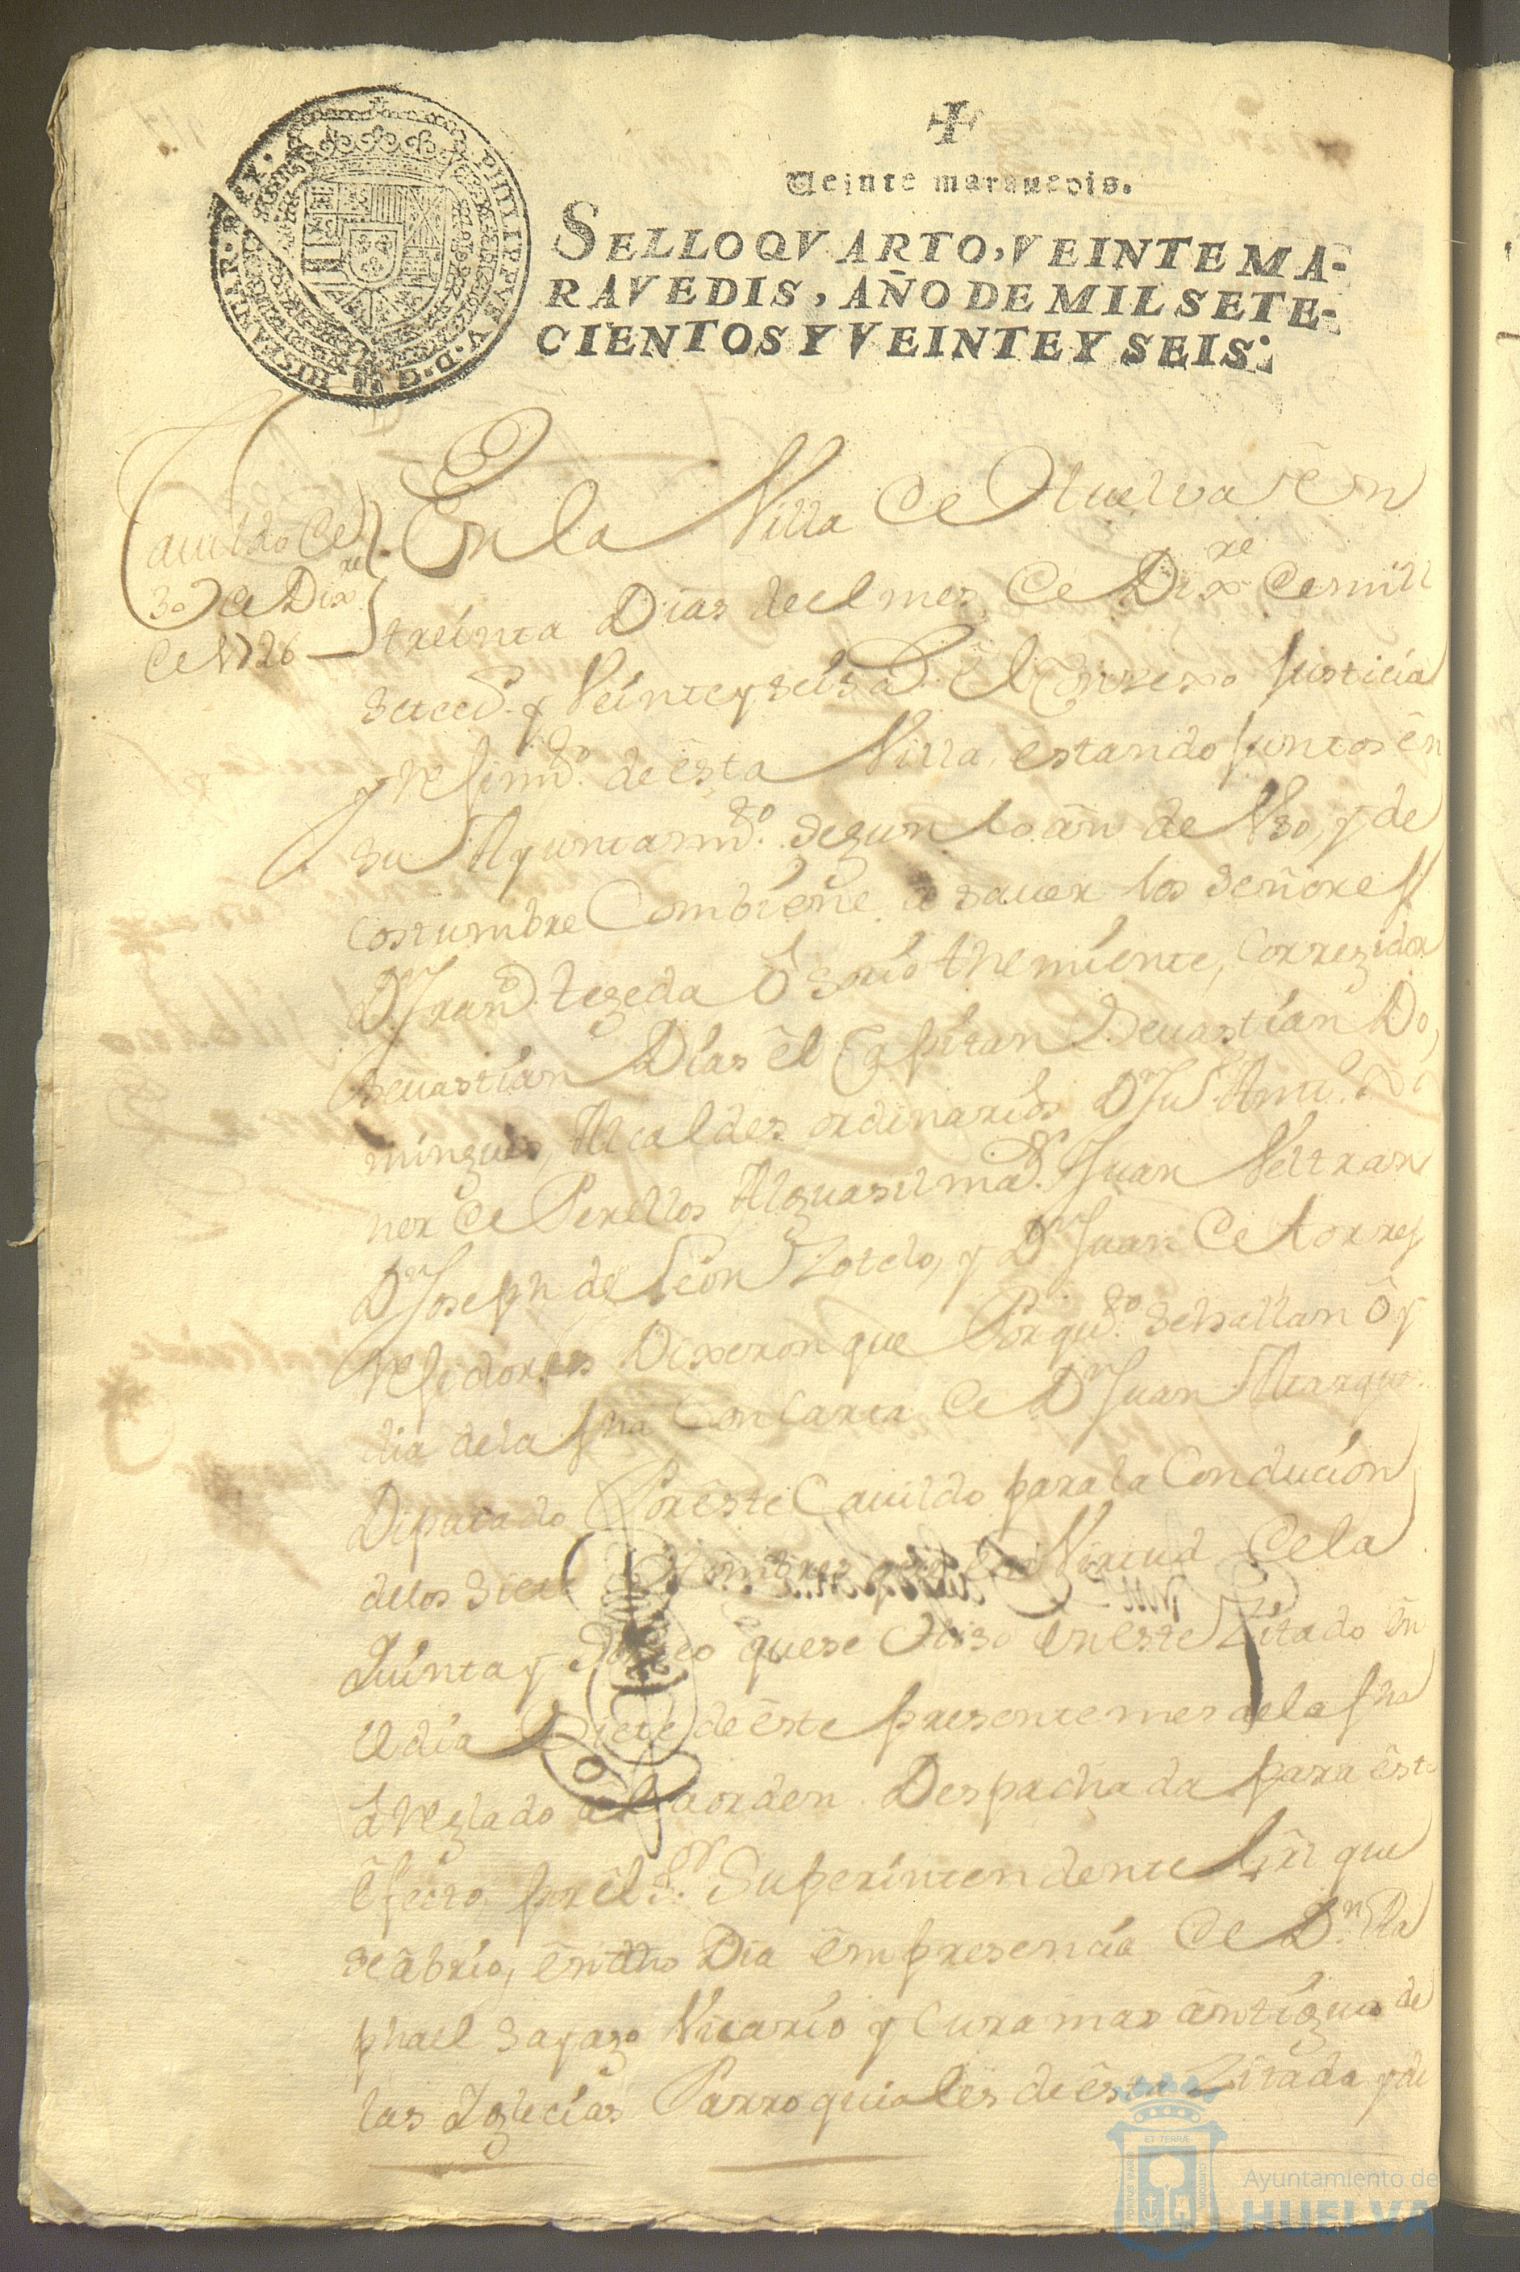 PHILIPPVS V. D. G. HISPANIAR. REX.
Veinte maravedis.
SELLO QVARTO, VEINTE MA-
RAVEDIS, AÑO DE MIL SETE-
CIENTOS Y VEINTE Y SEIS.
Cauildo de
30 de Dixre
de 1726
En la Villa de Huelva en
treinta Dias de el mes de Dixre de mill
setecos. y Veinte y seis as. el Conzexo Justicia
y Resimto. de esta Villa estando Juntos en
su Ayuntamto. segun lo an de Vso, y de
costumbre Combiene a sauer los señores
Dn Franco. tegeda Osorio theniente, Corregidor
Seuastian Dias el Capitan Seuastian Do,
minguez, Alcaldes ordinarios Dn Ju
ner de Perellos Alguasil mar. Juan Veltran
Dn Joseph de León Zotelo, y Dn Juan de torres
Residores Dixeron que Por qto. se hallan oy
dia de la fha Con Carta de Dn Juan Marques
Diputado Por este Cauildo para la Conducion
de los siete hombres que en Virtud de la
Quinta y Sorteo que se hiso en este Zitado en
el dia Siete de este presente mes de la fha
arreglado a la orden Despachada para este
efecto, por el Sr. Superintendente Grl que
se abrio, en dho Dia em presencia de Dn. Ra
phael sayago Vicario y Cura mas antiguo de
las Yglecias Parroquiales de esta Zitada y de
ET TERRÆ
Ayuntamiento de
HUELVA